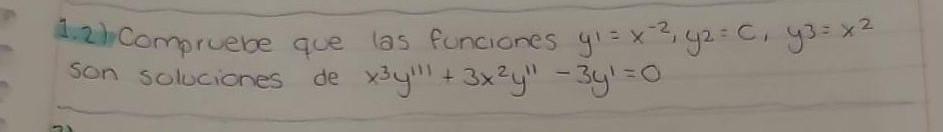 1.2) Compruebe que las funciones y' = x⁻², y2 = C, y3 = x²
son soluciones de x³y''' + 3x²y'' - 3y' = 0